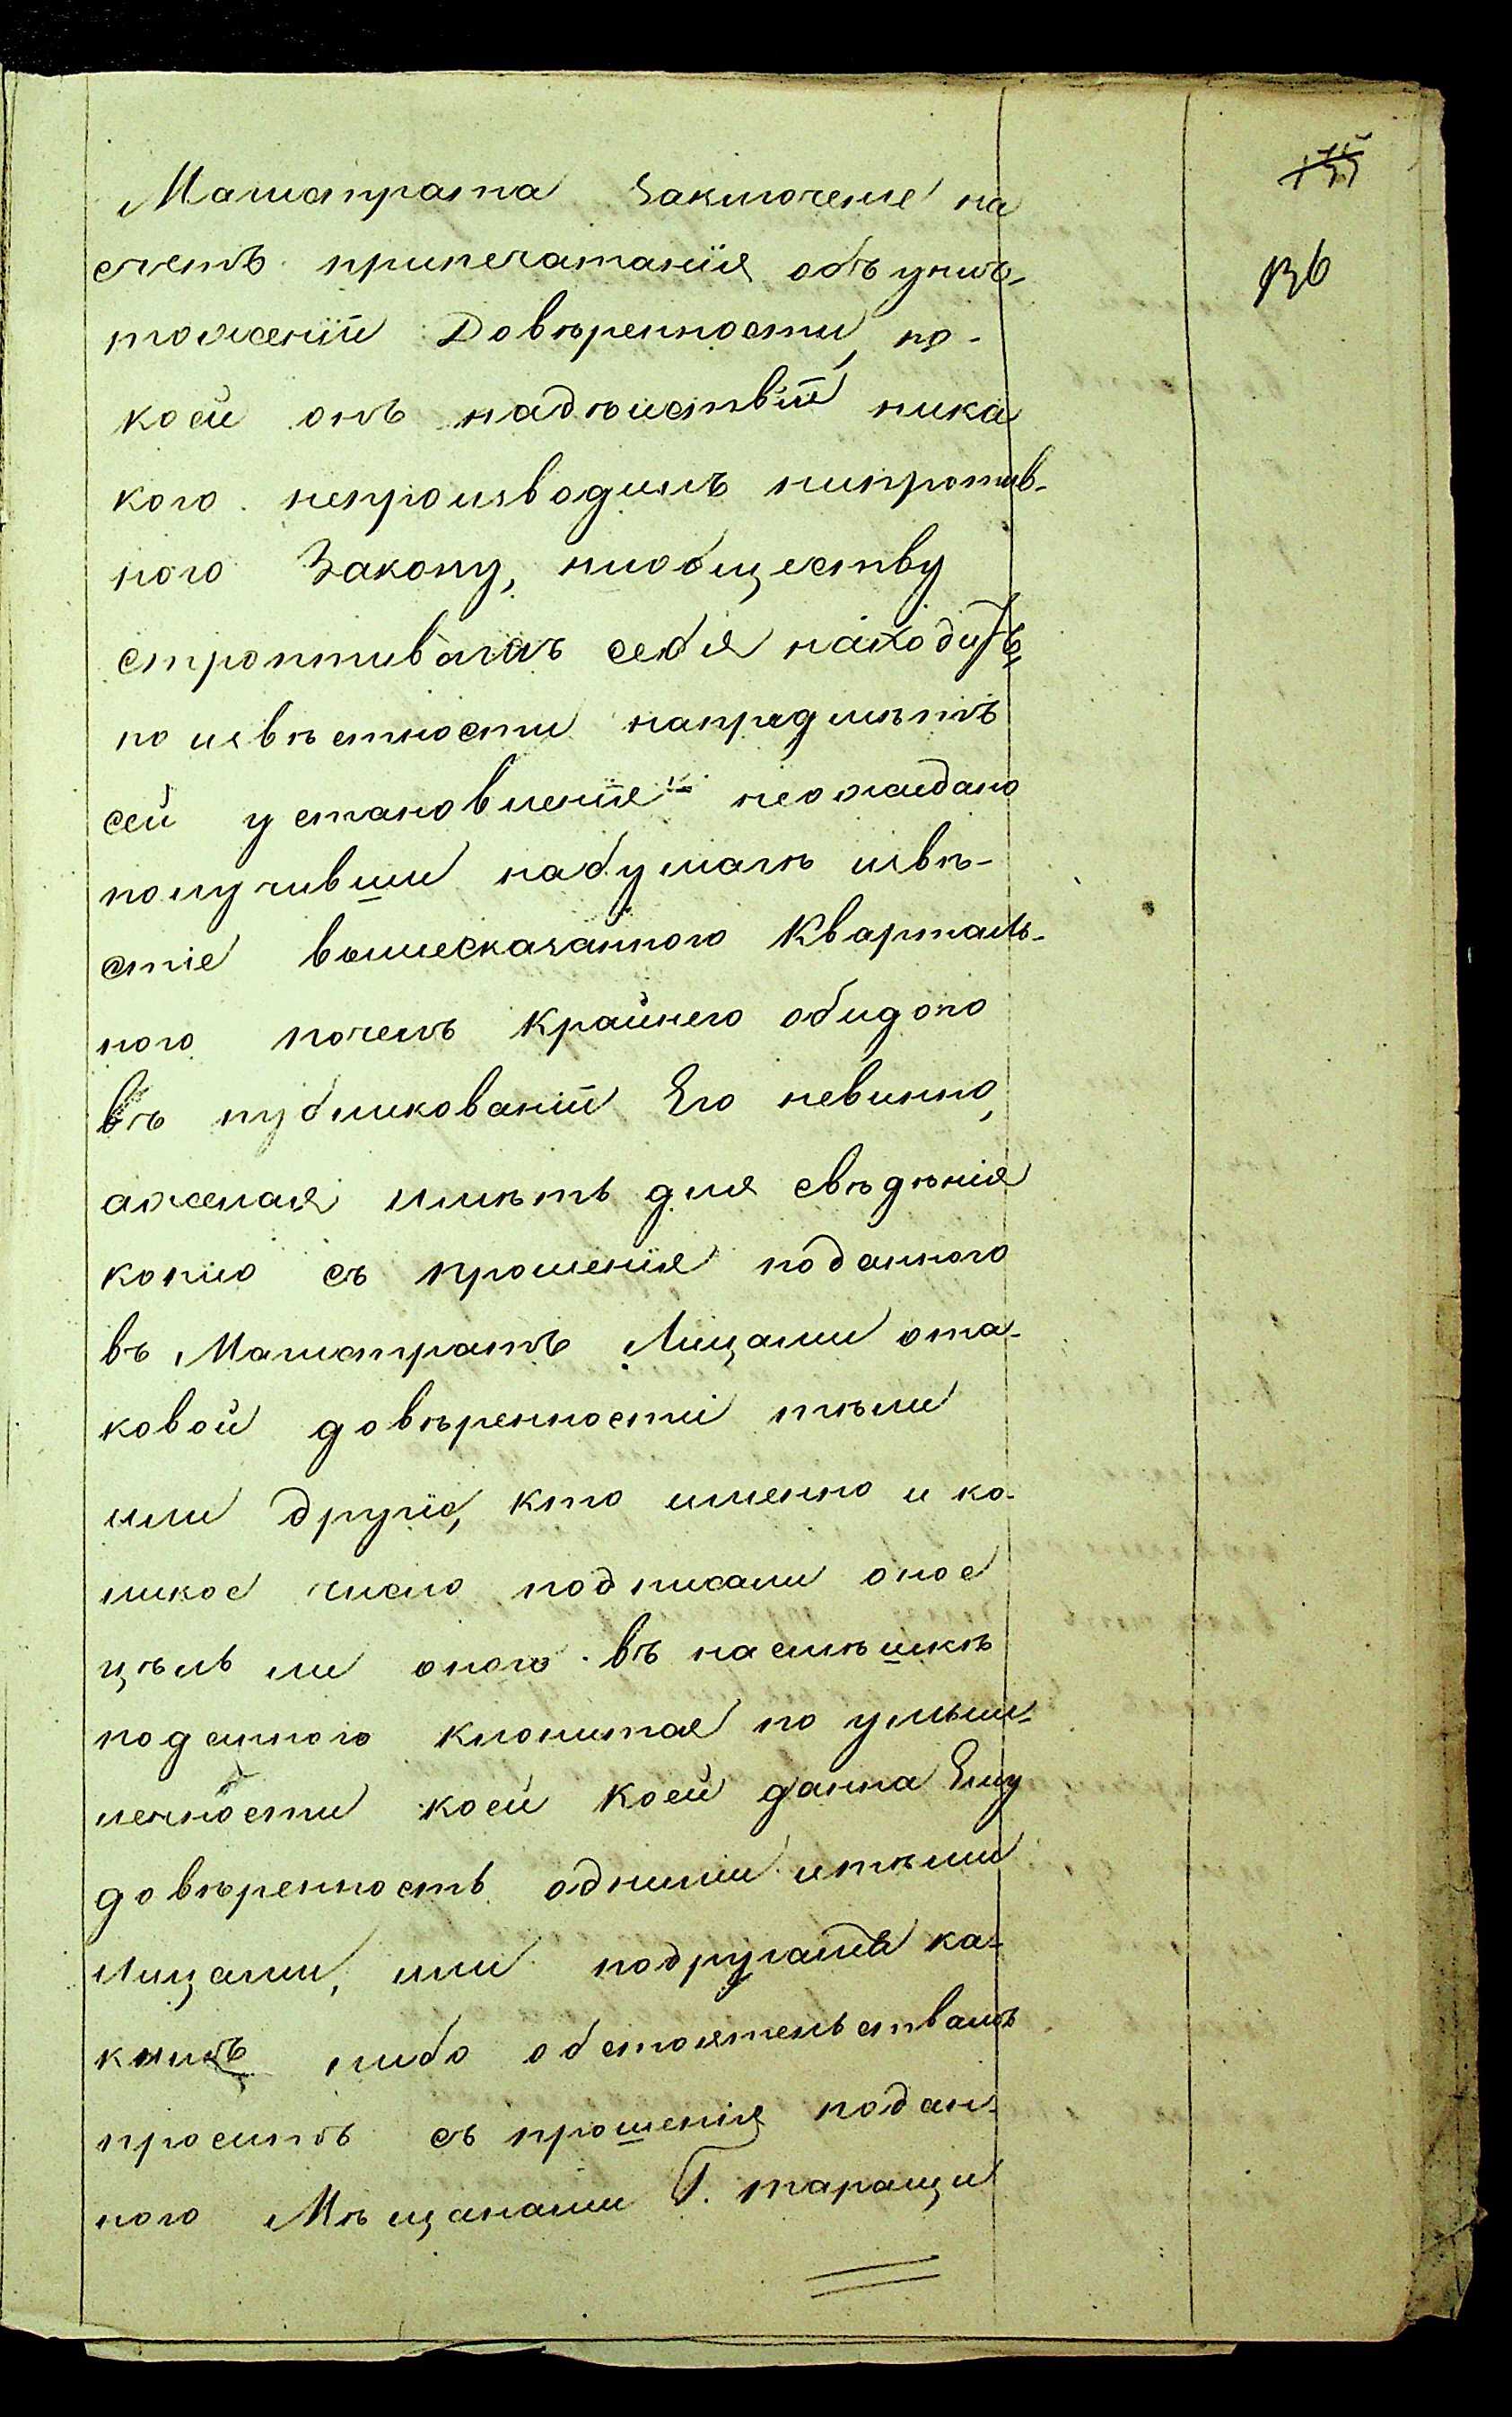 136
Магистрата Заключение на
счетъ припечатанїя объ унич-
тоженїи Довѣренности, по-
коей онъ надѣиствїй ника
кого непроизводилъ нипротив-
ного Закону, ниобществу
строптивогаъ себя находитъ
по извѣстности напредмѣтъ
сей установленїя неожидано
получивши набумагѣ извѣ-
стіе вышесказанного Квартал-
ного почелъ Крайнего обидого
въ публикованїи Его невинно,
ажелая имѣть для свѣдѣнія
копию съ прошенїя поданного
въ Магистратъ Лицами ота-
ковой довѣренности тѣми
или другїе, кто именно и ко-
ликое число подписали оное
цѣль ли оного въ насмѣшкѣ
поданного клонитая по умыш-
лености коей коей данна Ему
довѣренность одними итѣми
Лицами, или подругимъ ка-
кимъ либо обстоятельствамъ
проситъ съ прошенія подан-
ного Мѣщанами Г. таращи